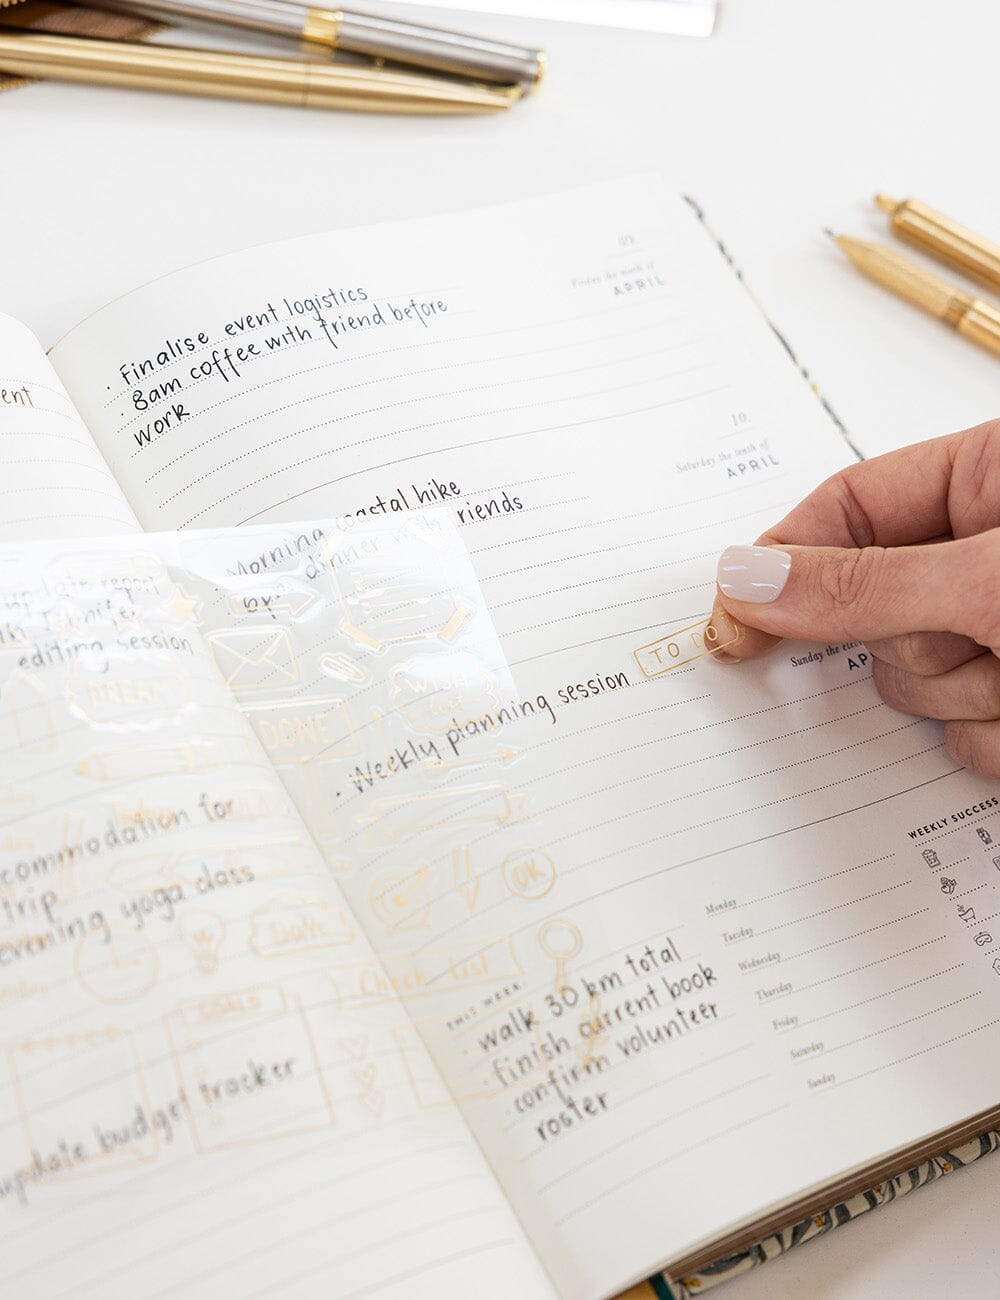 ent
update report
editing session
commodation for
trip
evening yoga class
update budget tracker
09.
Friday the ninth of
APRIL
· Finalise event logistics
· 8am coffee with friend before
work
10.
Saturday the tenth of
APRIL
· Morning coastal hike
dinner with friends
Sunday the ele
AP
TO DO
· Weekly planning session
THIS WEEK
· walk 30 km total
· finish current book
· confirm volunteer
roster
WEEKLY SUCCESS
Monday
Tuesday
Wednesday
Thursday
Friday
Saturday
Sunday
DONE
OK
Check List
GOALS